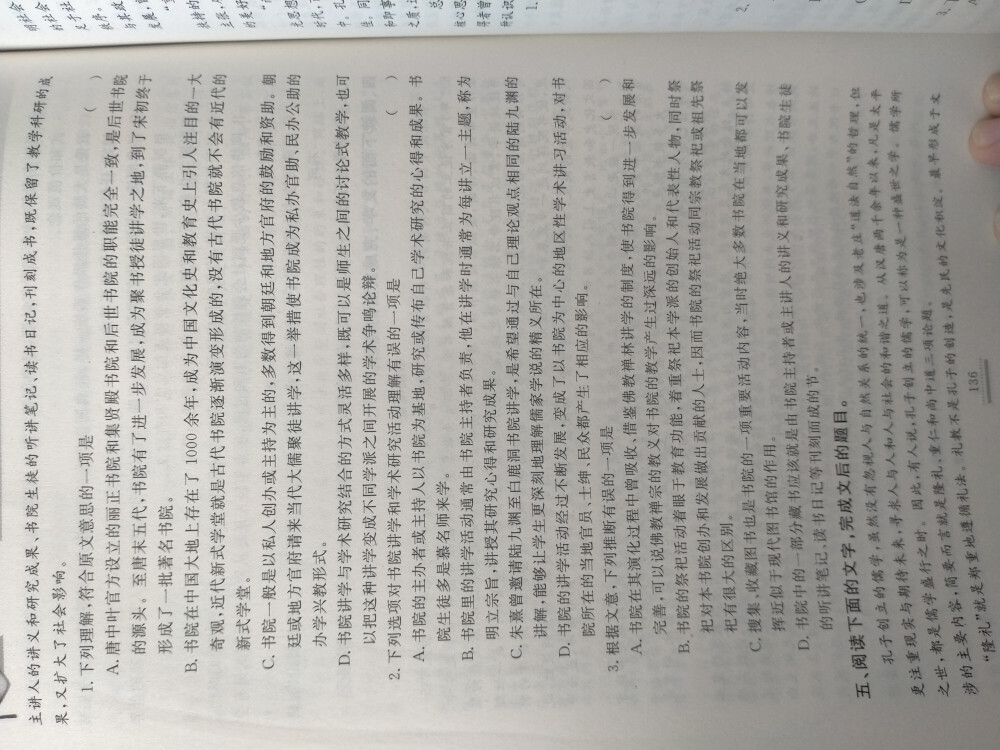 主讲人的讲义和研究成果、书院生徒的听讲笔记、读书日记,刊刻成书,既保留了教学科研的成
果,又扩大了社会影响。
1. 下列理解,符合原文意思的一项是 ( )
A. 唐中叶官方设立的丽正书院和集贤殿书院和后世书院的职能完全一致,是后世书院
的源头。至唐末五代,书院有了进一步发展,成为聚书授徒讲学之地,到了宋初终于
形成了一批著名书院。
B. 书院在中国大地上存在了 1000 余年,成为中国文化史和教育史上引人注目的一大
奇观,近代新式学堂就是古代书院逐渐演变形成的,没有古代书院就不会有近代的
新式学堂。
C. 书院一般是以私人创办或主持为主的,多数得到朝廷和地方官府的鼓励和资助。朝
廷或地方官府请来当代大儒聚徒讲学,这一举措使书院成为私办官助、民办公助的
办学兴教形式。
D. 书院讲学与学术研究结合的方式灵活多样,既可以是师生之间的讨论式教学,也可
以把这种讲学变成不同学派之间开展的学术争鸣论辩。
2. 下列选项对书院讲学和学术研究活动理解有误的一项是 ( )
A. 书院的主办者或主持人以书院为基地,研究或传布自己学术研究的心得和成果。书
院生徒多是慕名师来学。
B. 书院里的讲学活动通常由书院主持者负责,他在讲学时通常为每讲立一主题,称为
明立宗旨,讲授其研究心得和研究成果。
C. 朱熹曾邀请陆九渊至白鹿洞书院讲学,是希望通过与自己理论观点相同的陆九渊的
讲解,能够让学生更深刻地理解儒家学说的精义所在。
D. 书院的讲学活动经过不断发展,变成了以书院为中心的地区性学术讲习活动,对书
院所在的当地官员、士绅、民众都产生了相应的影响。
3. 根据文意,下列推断有误的一项是 ( )
A. 书院在其演化过程中曾吸收、借鉴佛教禅林讲学的制度,使书院得到进一步发展和
完善,可以说佛教禅宗的教义对书院的教学产生过深远的影响。
B. 书院的祭祀活动着眼于教育功能,着重祭祀本学派的创始人和代表性人物,同时祭
祀对本书院创办和发展做出贡献的人士,因而书院的祭祀活动同宗教祭祀或祖先祭
祀有很大的区别。
C. 搜集、收藏图书也是书院的一项重要活动内容,当时绝大多数书院在当地都可以发
挥近似于现代图书馆的作用。
D. 书院中的一部分藏书应该就是由书院主持者或主讲人的讲义和研究成果、书院生徒
的听讲笔记、读书日记等刊刻而成的书。
五、阅读下面的文字,完成文后的题目。
孔子创立的儒学,虽然没有忽视人与自然关系的统一,也涉及老庄“道法自然”的哲理,但
更注重现实与期待未来,寻求人与人和人与社会的和谐之道。从汉唐两千余年以来,凡是太平
之世,都是儒学盛行之时。因此,有人说,孔子创立的儒学,可以称为是一种盛世之学。儒学所
涉的主要内容,简要而言就是隆礼、重仁和尚中道三项论题。
“隆礼”就是郑重地遵循礼法。礼教不是孔子的创造,是先民的文化积淀。最早形成于文
136